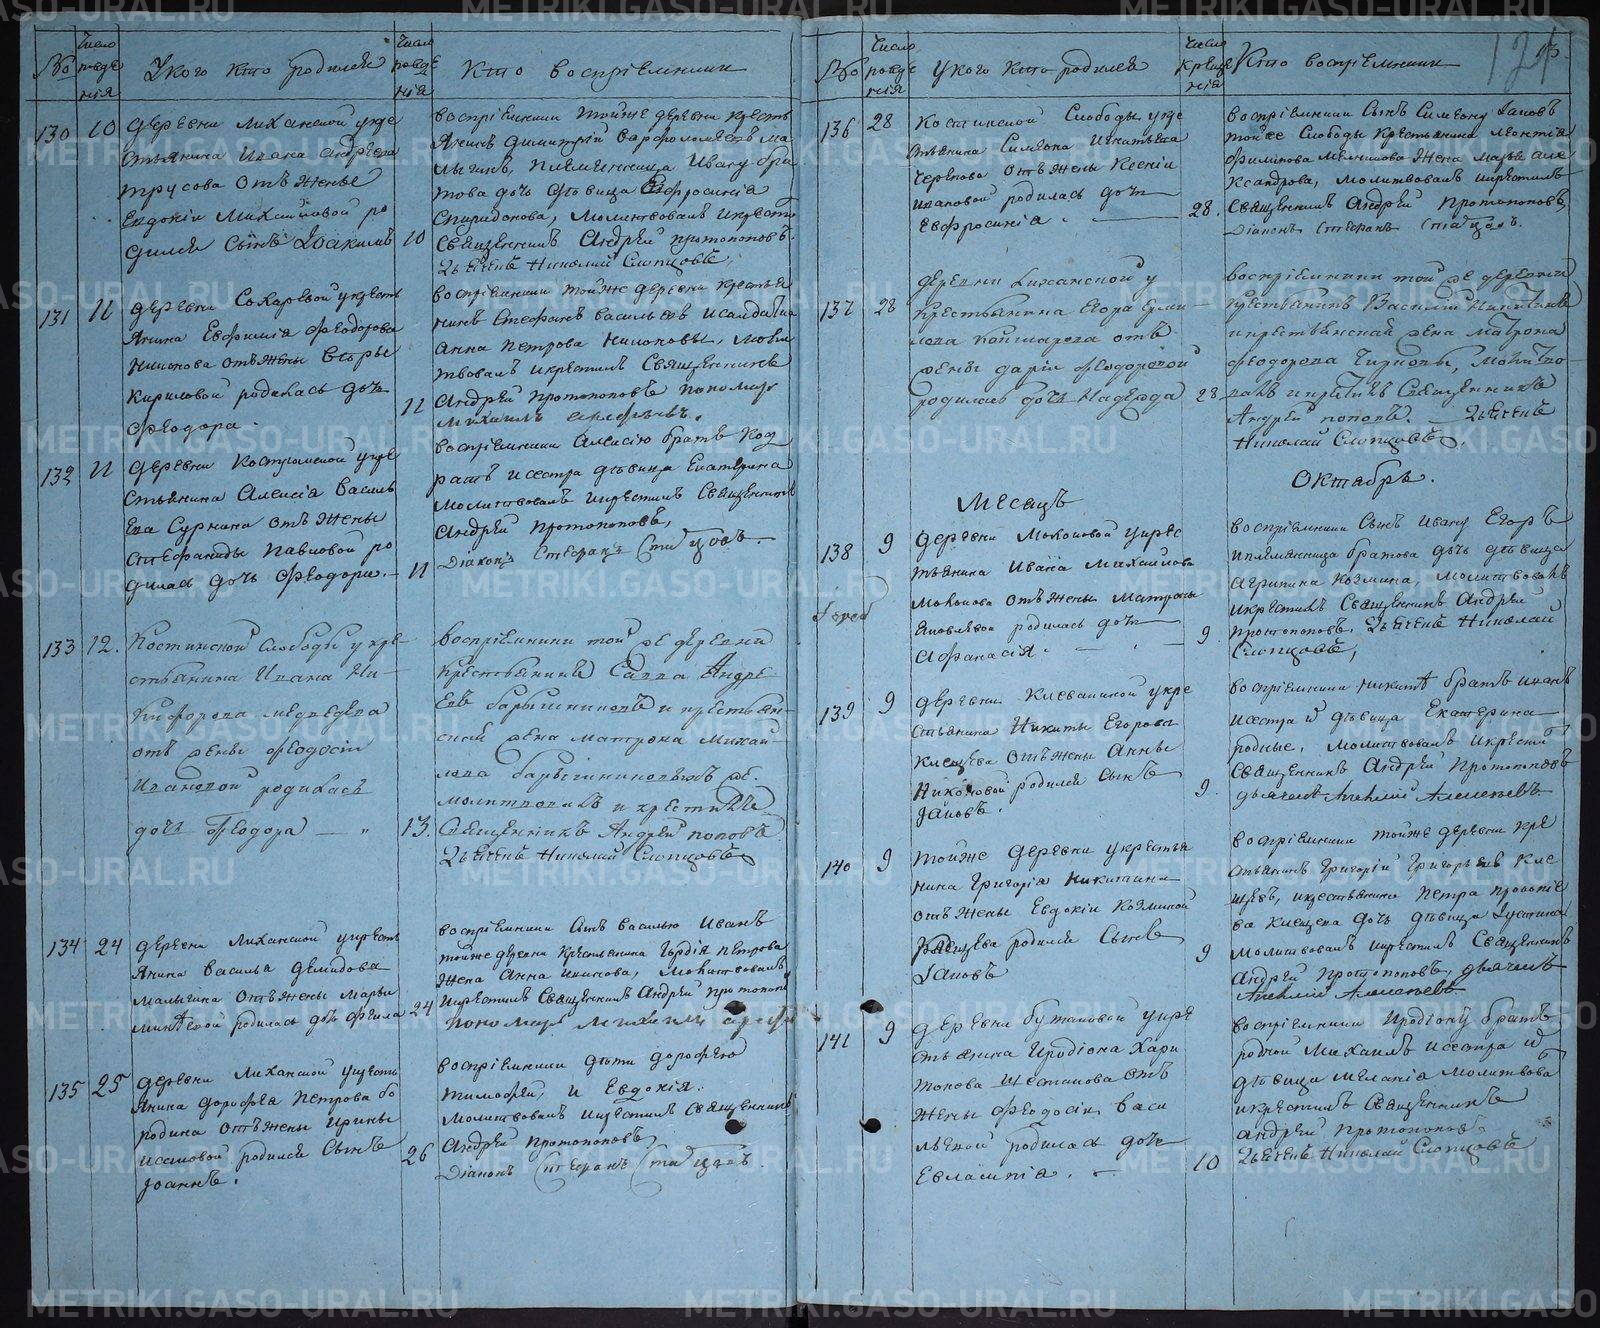 №
Число рожденія
У кого кто родился
Число рожденія
Кто воспріемники
130
10
деревни Лиханской у кре
стьянина Ивана Андреева
Трусова отъ жены
Евдокіи Михайловой ро
дился сынъ Іоакимъ
10
воспріемники тойже деревни кресть
янинъ Димитрій Варфоломеевъ Ма
лыгинъ, племянница Ивану бра
това дочь дѣвица Афросинія
Спиридонова, Молитвовалъ и крести
Священникъ Андрей Протопоповъ.
Дьячекъ Николай Слопцовъ,
131
11
деревни Сохаревой у кресть
янина Евфимія Феодорова
Никонова отъ жены Вѣры
Кириловой родилась дочь
Феодора.
11
воспріемники тойже деревни крестья
нинъ Стефанъ Васильевъ и солдатка
Анна Петрова Никоновы, Моли
твовалъ и крестилъ Священникъ
Андрей Протопоповъ пономарь
Михаилъ
132
11
деревни Костромской у кре
стьянина Алексія Василь
ева Суркина отъ жены
Стефаниды Павловой ро
дилась дочь Феодора.
11
воспріемники Алексію братъ Код
ратъ и сестра дѣвица Екатерина
Молитвовалъ и крестилъ Священникъ
Андрей Протопоповъ,
Діаконъ Стефанъ
133
12.
Костинской слободы у кре
стьянина Ивана Ни-
кифорова Медведева
отъ жены Феодосіи
Ивановой родилась
дочь Феодора — "
13.
воспріемники той же деревни
крестьянинъ Савва Андре-
евъ Барышниковъ и крестьян-
ской жена Матрона Михай-
лова Барышниковыхъ же.
молитвовалъ и крестилъ
Священникъ Андрей Поповъ
Дьячекъ Николай Слопцовъ
134
24
деревни Лиханской у кресть
янина Василья Демидова
Малыгина отъ жены Марьи
Минѣевой родилась дочь Фекла
24
воспріемники Сынъ Василью Иванъ
тойже деревни крестьянина Гордія Петрова
жена Анна Никонова, Молитвовалъ
и крестилъ Священникъ Андрей Протопопо
пономарь Михаилъ
135
25
деревни Лиханской у кресть
янина Дорофея Петрова Бо
родина отъ жены Ирины
Исаковой родился сынъ
Іоаннъ.
26
воспріемники дѣти Дорофею
Тимофей, и Евдокія.
Молитвовалъ и крестилъ Священникъ
Андрей Протопоповъ
Діаконъ Стефанъ
№
Число рожденія
У кого кто родился
Число крещенія
Кто воспріемники
136
28
Костинской Слободы у кре
стьянина Симеона Игнатьева
Черепова отъ жены Ксеніи
Ивановой родилась дочь
Евфросинія.
28.
воспріемники Сынъ Симеону Іаковъ
тойже Слободы крестьянина Леонтія
Филипова Мелникова жена Марья Але
ксандрова, Молитвовалъ и крестилъ
Священникъ Андрей Протопоповъ,
Діаконъ Стефанъ
137
28
деревни Лиханской у
крестьянина Егора Ерми-
лова Коштарова отъ
жены Дарьи Феодоровой
родилась дочь Надежда
28
воспріемники той же деревни
крестьянинъ Василій Никитинъ
и крестьянской жена Матрона
Феодорова Чирковы, Молитво-
валъ и крестилъ Священникъ
Андрей Поповъ. Дьячекъ
Николай Слопцовъ.
Месяцъ
Октябрь.
138
9
деревни Мокиновой у крес
тьянина Ивана Михайлова
Мокинова отъ жены Матроны
Яковлевой родилась дочь
Афанасія.
9
воспріемники Сынъ Ивану Егоръ
и племянница братова дочь дѣвица
Агрипина Козмина, Молитвовалъ
и крестилъ Священникъ Андрей
Протопоповъ. Дьячекъ Николай
Слопцовъ,
139
9
деревни Клевакиной у кре
стьянина Никиты Егорова
Клещева отъ жены Анны
Никоновой родился сынъ
Іаковъ.
9.
воспріемники Никитѣ братъ Иванъ
и сестра дѣвица Екатерина
родные, Молитвовалъ и крестил
Священникъ Андрей Протопоповъ
дьячекъ Алексеевъ
140
9
тойже деревни у крестья
нина Григорія Никитина
отъ жены Евдокіи Козминой
Клещева родился сынъ
Іаковъ
9
воспріемники тойже деревни кре
стьянинъ Григорій Григорьевъ Кле
щевъ, и крестьянина Петра Прокопіе
ва Клещева дочь дѣвица Іустина
Молитвовалъ и крестилъ Священникъ
Андрей Протопоповъ, дьячекъ
Алексеевъ
141
9
деревни Бутаковой у кре
стьянина Иродіона Хари
тонова Шестакова отъ
жены Феодосіи Васи
льевой родилась дочь
Евлампія.
10
воспріемники Иродіону братъ
родной Михаилъ и сестра
дѣвица Меланія Молитвова
и крестилъ Священникъ
Андрей Протопоповъ
Дьячекъ Николай Слопцовъ
METRIKI.GASO-URAL.RU